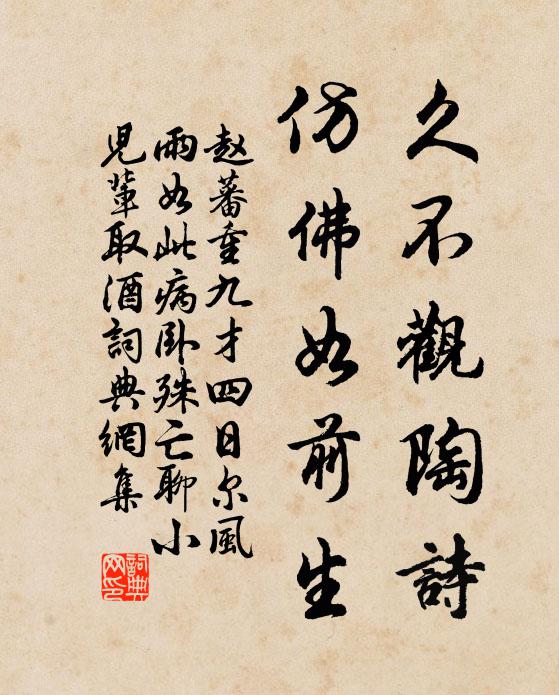 久不觀陶詩
仿佛如前生
赵蕃重九才四日尔風
雨如此病卧殊亡聊小
児輩取酒詞典網集
詞典
网印